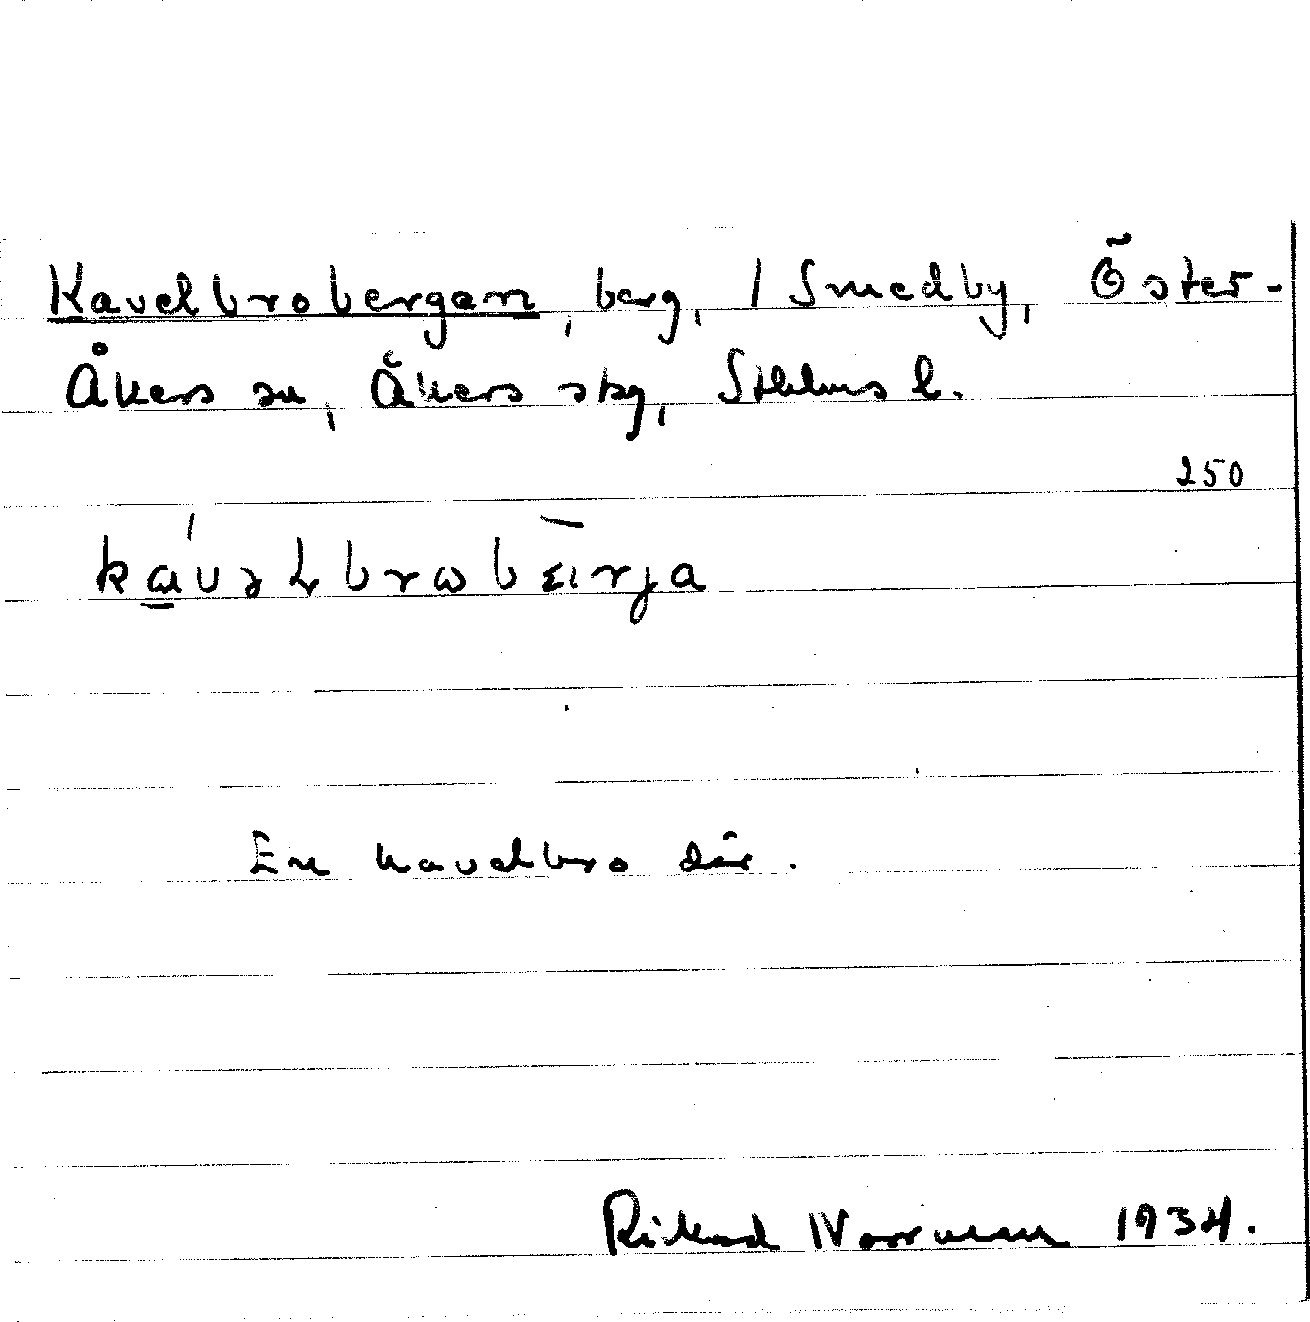 Kavelbrobergen, berg, / Smedby, Öster-
Åkers sn, Åkers skg, Sthlms l.
250
ka̱´vəɫbrωbɛ̄ırja
En kavelbro där.
Rickard Norrman 1934.